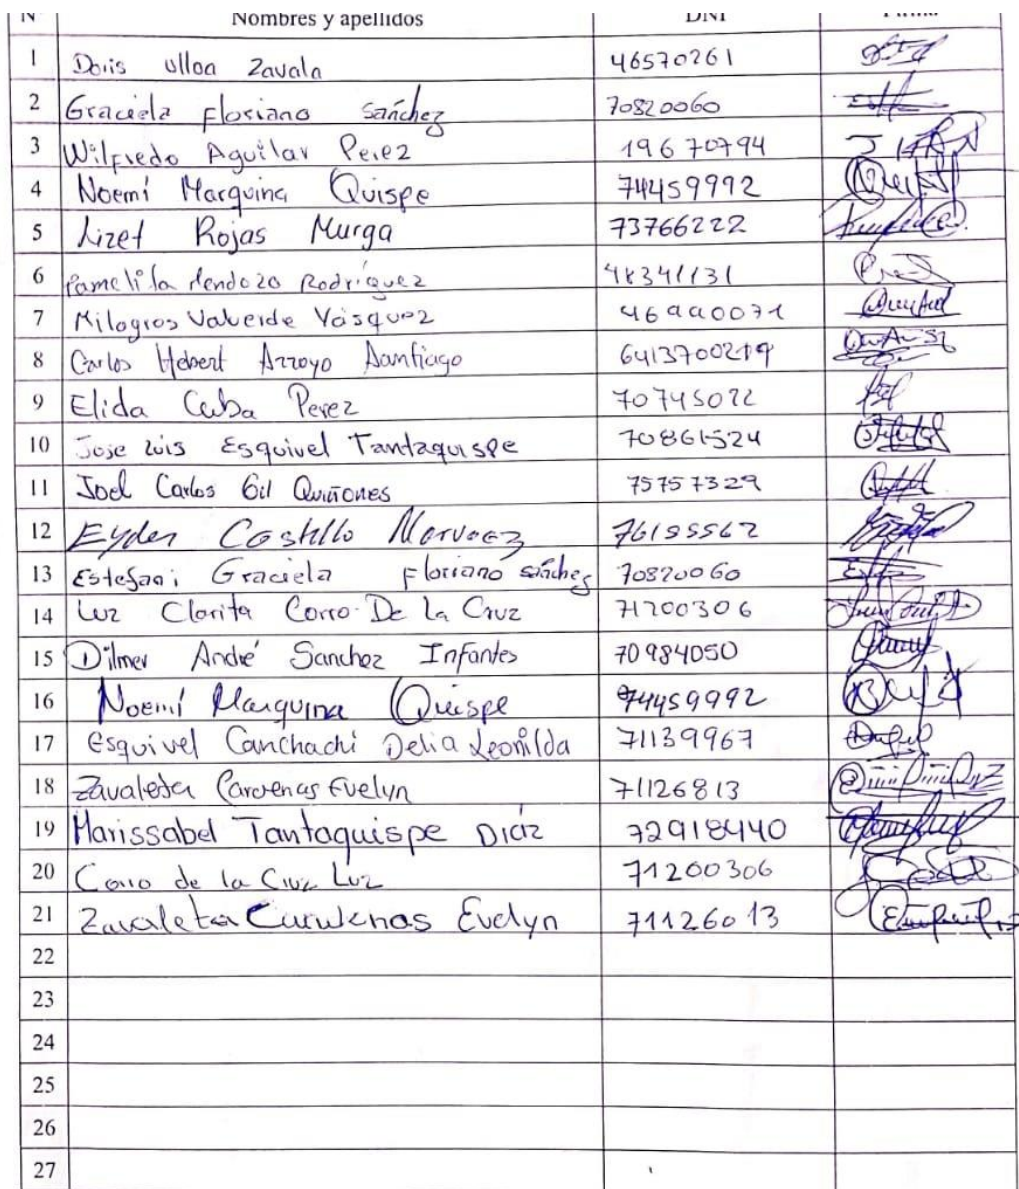 N° Nombres y apellidos DNI Firma
1 Doris Ulloa Zavala 46570261
2 Graciela Floriano Sánchez 70820060
3 Wilfredo Aguilar Perez 19670794
4 Noemí Marquina Quispe 74459992
5 Lizet Rojas Murga 73766222
6 Pamelita Mendoza Rodriguez 48341131
7 Milagros Valverde Vásquez 46990071
8 Carlos Hebert Arroyo Santiago
9 Elida Cuba Perez 70745022
10 Jose Luis Esquivel Tantaquispe 70861524
11 Joel Carlos Gil Quiñones 75757329
12 Eyder Castillo Narvaez 76195562
13 Estefani Graciela Floriano Sánchez 70820060
14 Luz Clarita Corro De la Cruz 71200306
15 Dilmer André Sanchez Infantes 70984050
16 Noemí Marquina Quispe 74459992
17 Esquivel Canchachi Delia Leonilda 71139967
18 Zavaleta Carvenas Evelyn 71126813
19 Marissabel Tantaquispe Diáz 72918440
20 Corro de la Cruz Luz 71200306
21 Zavaleta Evelyn 71126013
22
23
24
25
26
27